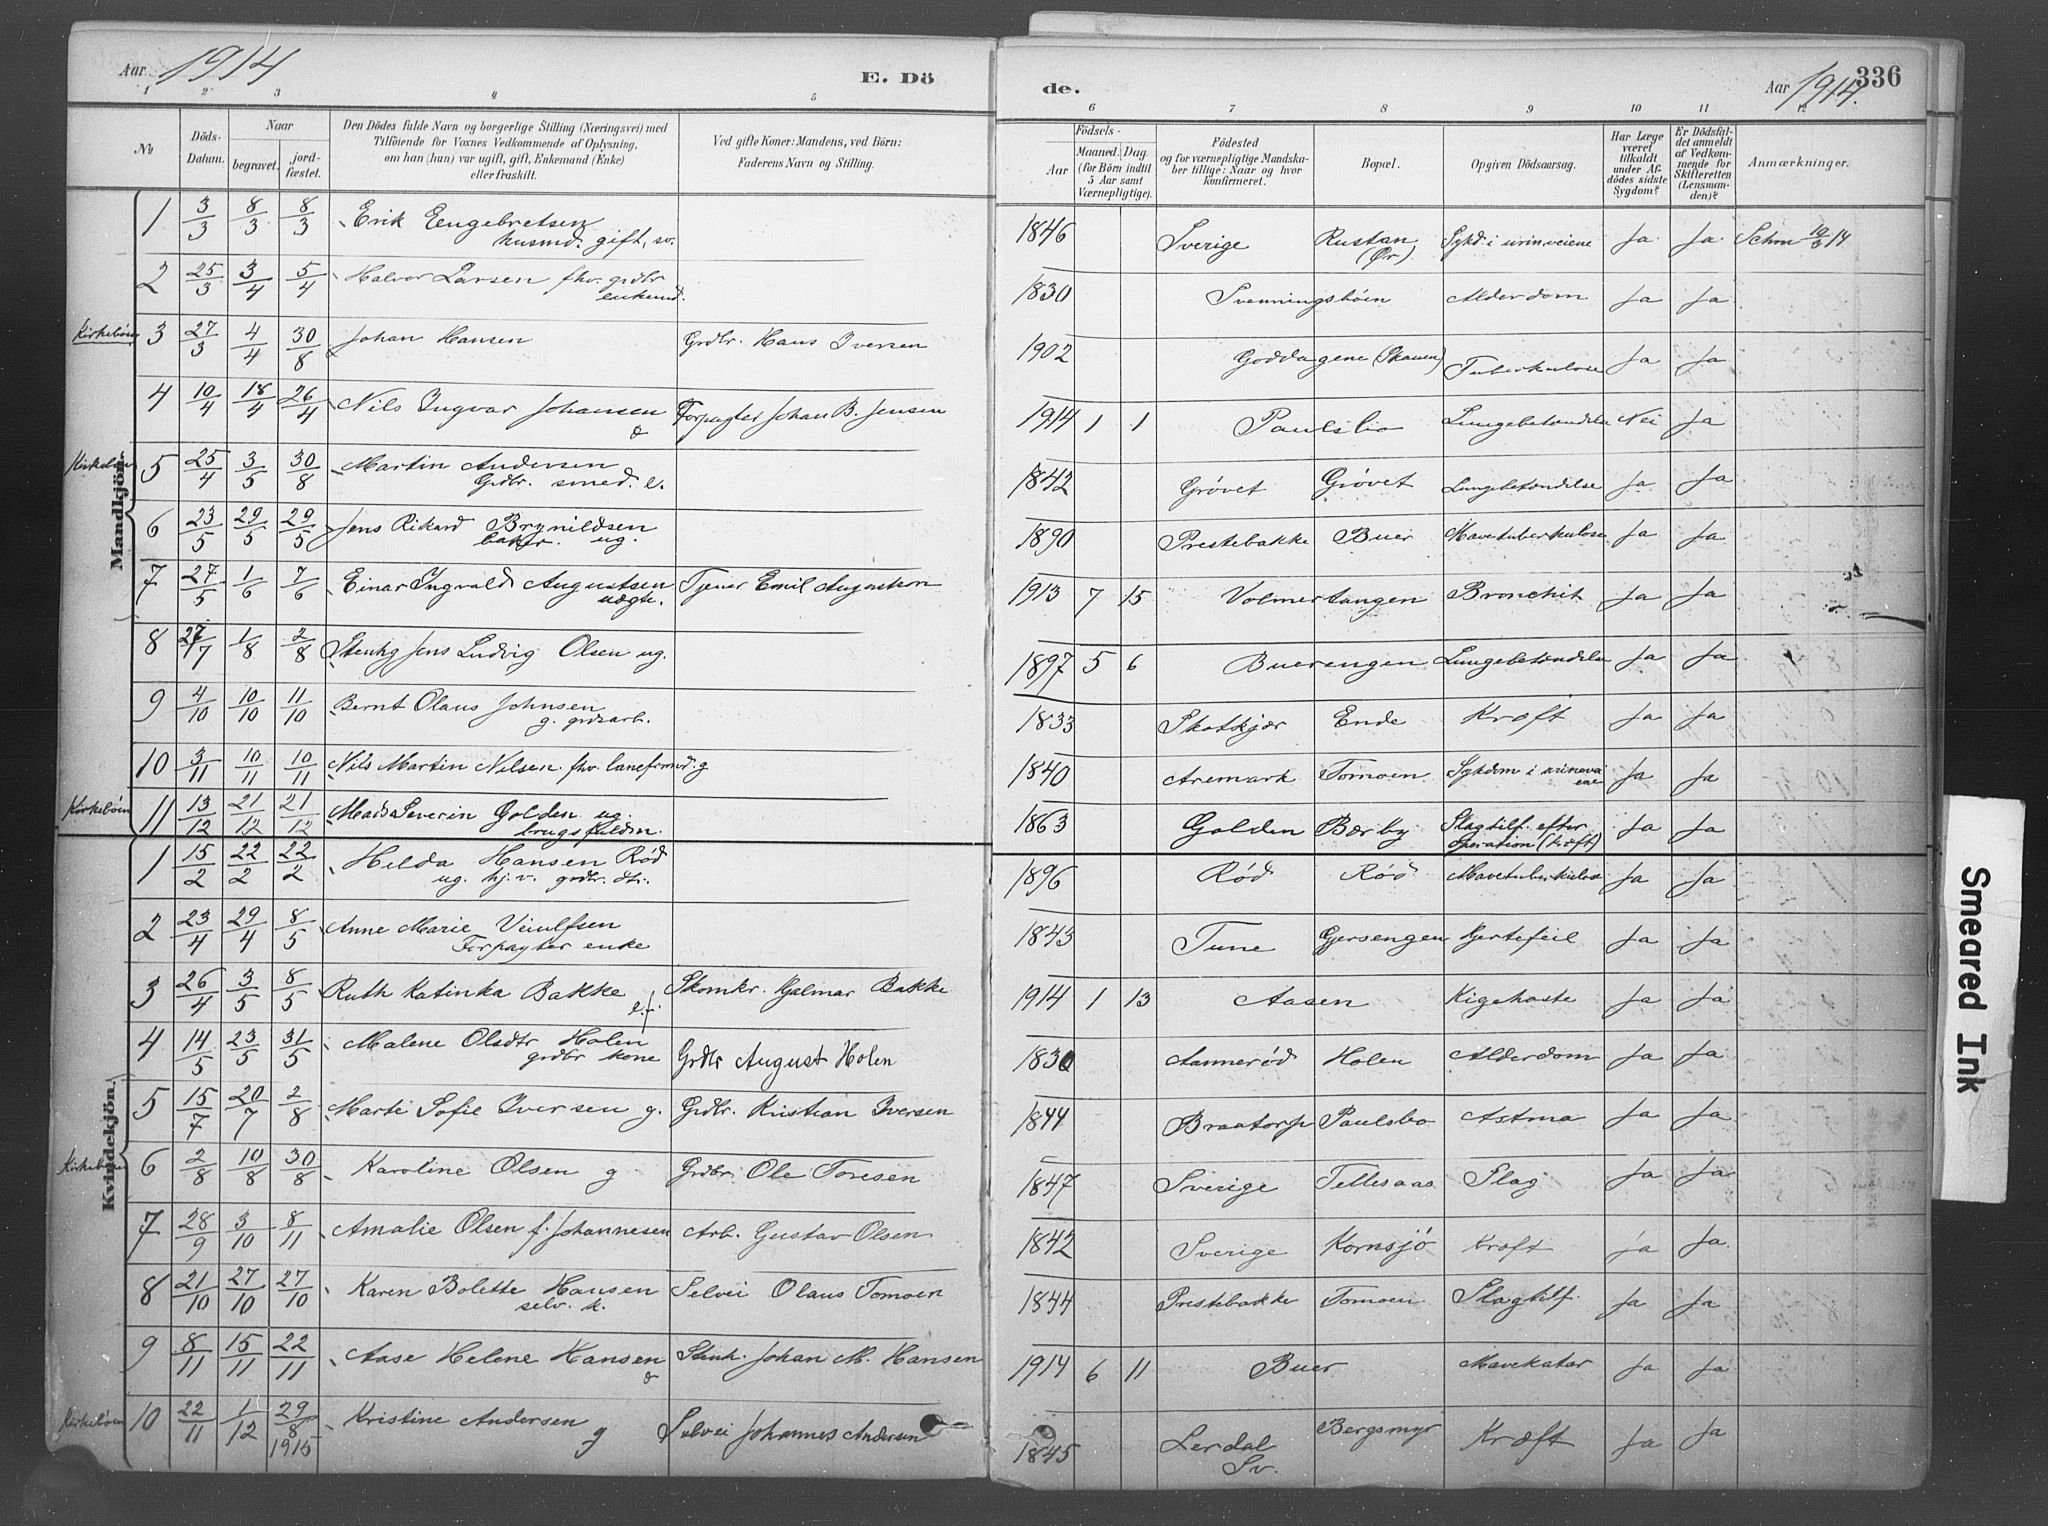 Aar 1914
E. Dö
de.
Aar 1914.
336
1 2 3 4 5 6 7 8 9 10 11 12
No
Döds-Datum.
Naar
begravet.
jord-fæstet.
Den Dödes fulde Navn og borgerlige Stilling (Næringsvei) med
Tilföiende for Voxnes Vedkommende af Oplysning,
om han (hun) var ugift, gift, Enkemand (Enke)
eller fraskilt.
Ved gifte Koner: Mandens, ved Börn:
Faderens Navn og Stilling.
Födsels-
Aar
Maaned. Dag
(for Börn indtil
5 Aar samt
Værnepligtige).
Födested
og for værnepligtige Mandska-
ber tillige: Naar og hvor
konfirmeret.
Bopæl.
Opgiven Dödsaarsag.
Har Læge
været
tilkaldt
under Af-
dödes sidste
Sygdom?
Er Dödsfal-
det anmeldt
af Vedkom-
mende for
Skifteretten
(Lensman-
den)?
Anmærkninger.
Mandkjön.
1 3/3 8/3 8/3 Erik Eengebretsen husmd. gift, sv. 1846 Sverige Rustan (Ør) Sykd. i urinveiene Ja Ja Schm 19/3 14
2 25/3 3/4 5/4 Halvor Larsen fhv. grdbr enkemd. 1830 Svenningsböen Alderdom Ja Ja
Kirkebøen 3 27/3 4/4 30/8 Johan Hansen Grdbr. Hans Iversen 1902 Goddagene (Skauen) Tuberkulose Ja Ja
4 10/4 18/4 26/4 Nils Ingvar Johansen Forpagter Johan B. Jensen 1914 1 1 Paulsbo Lungebetændelse Nei Ja
5 25/4 3/5 30/8 Martin Andersen Grdbr. smed. e. 1842 Gróvet Gróvet Lungebetændelse Ja Ja
6 23/5 29/5 29/5 Jens Rikard Brynildsen baker. ug. 1890 Prestebakke Buer Mavetuberkulose Ja Ja
7 27/5 1/6 7/6 Einar Ingvald Augustsen uægte. Tjener Emil Augustson 1913 7 15 Volmertangen Bronchit Ja Ja
8 27/7 1/8 2/8 Stenhg Jens Ludvig Olsen ug. 1897 5 6 Buerengen Lungebetændelse Ja Ja
9 4/10 10/10 11/10 Bernt Olaus Johnsen g. grdsarb. 1833 Skotskjær Ende Kræft Ja Ja
10 3/11 10/11 10/11 Nils Martin Nilsen fhv. laneformd. g 1840 Aremark Tomoen Sykdom i urinveiene Ja Ja
Kirkebøen 11 13/12 21/12 21/12 Mads Severin Golden ug. brugsfuldm. 1863 Golden Bærby Slagtilf. efter operation (kræft) Ja Ja
Kvindekjön.
1 15/2 22/2 22/2 Hilda Hansen Rød ug. hj.v. grdbr. dtr. 1896 Rød Rød Mavetuberkulose Ja Ja
2 23/4 29/4 8/5 Anne Marie Veiulfsen Forpagter enke 1843 Tune Gjersengen Hjertefeil Ja Ja
3 26/4 3/5 8/5 Ruth Katinka Bakke Skomkr. Hjalmar Bakke 1914 1 13 Aasen Kigehoste Ja Ja
4 14/5 23/5 31/5 Malene Olsdtr Holen grdbr kone Grdbr August Holen 1830 Aannerød Holen Alderdom Ja Ja
5 15/7 20/7 2/8 Marte Sofie Iversen g. Grdbr. Kristian Iversen 1844 Braatorp Paulsbo Astma Ja Ja
Kirkebøen 6 2/8 10/8 30/8 Karoline Olsen g Grdbr. Ole Toresen 1847 Sverige Tellesaas Slag Ja Ja
7 28/9 3/10 8/11 Amalie Olsen f. Johannesen Arb. Gustav Olsen 1842 Sverige Kornsjö Kræft Ja Ja.
8 21/10 27/10 27/10 Karen Bolette Hansen selv. k. Selvei Olaus Tomoen 1844 Prestebakke Tomoen Slagtilf. Ja Ja
9 8/11 15/11 22/11 Aase Helene Hansen Stenh. Johan M. Hansen 1914 6 11 Buer Mavekatar Ja Ja
Kirkebøen 10 22/11 1/12 29/8 1915 Kristine Andersen g Selvei Johannes Andersen 1845 Lerdal Sv. Bergsmyr Kræft Ja Ja
Smeared Ink